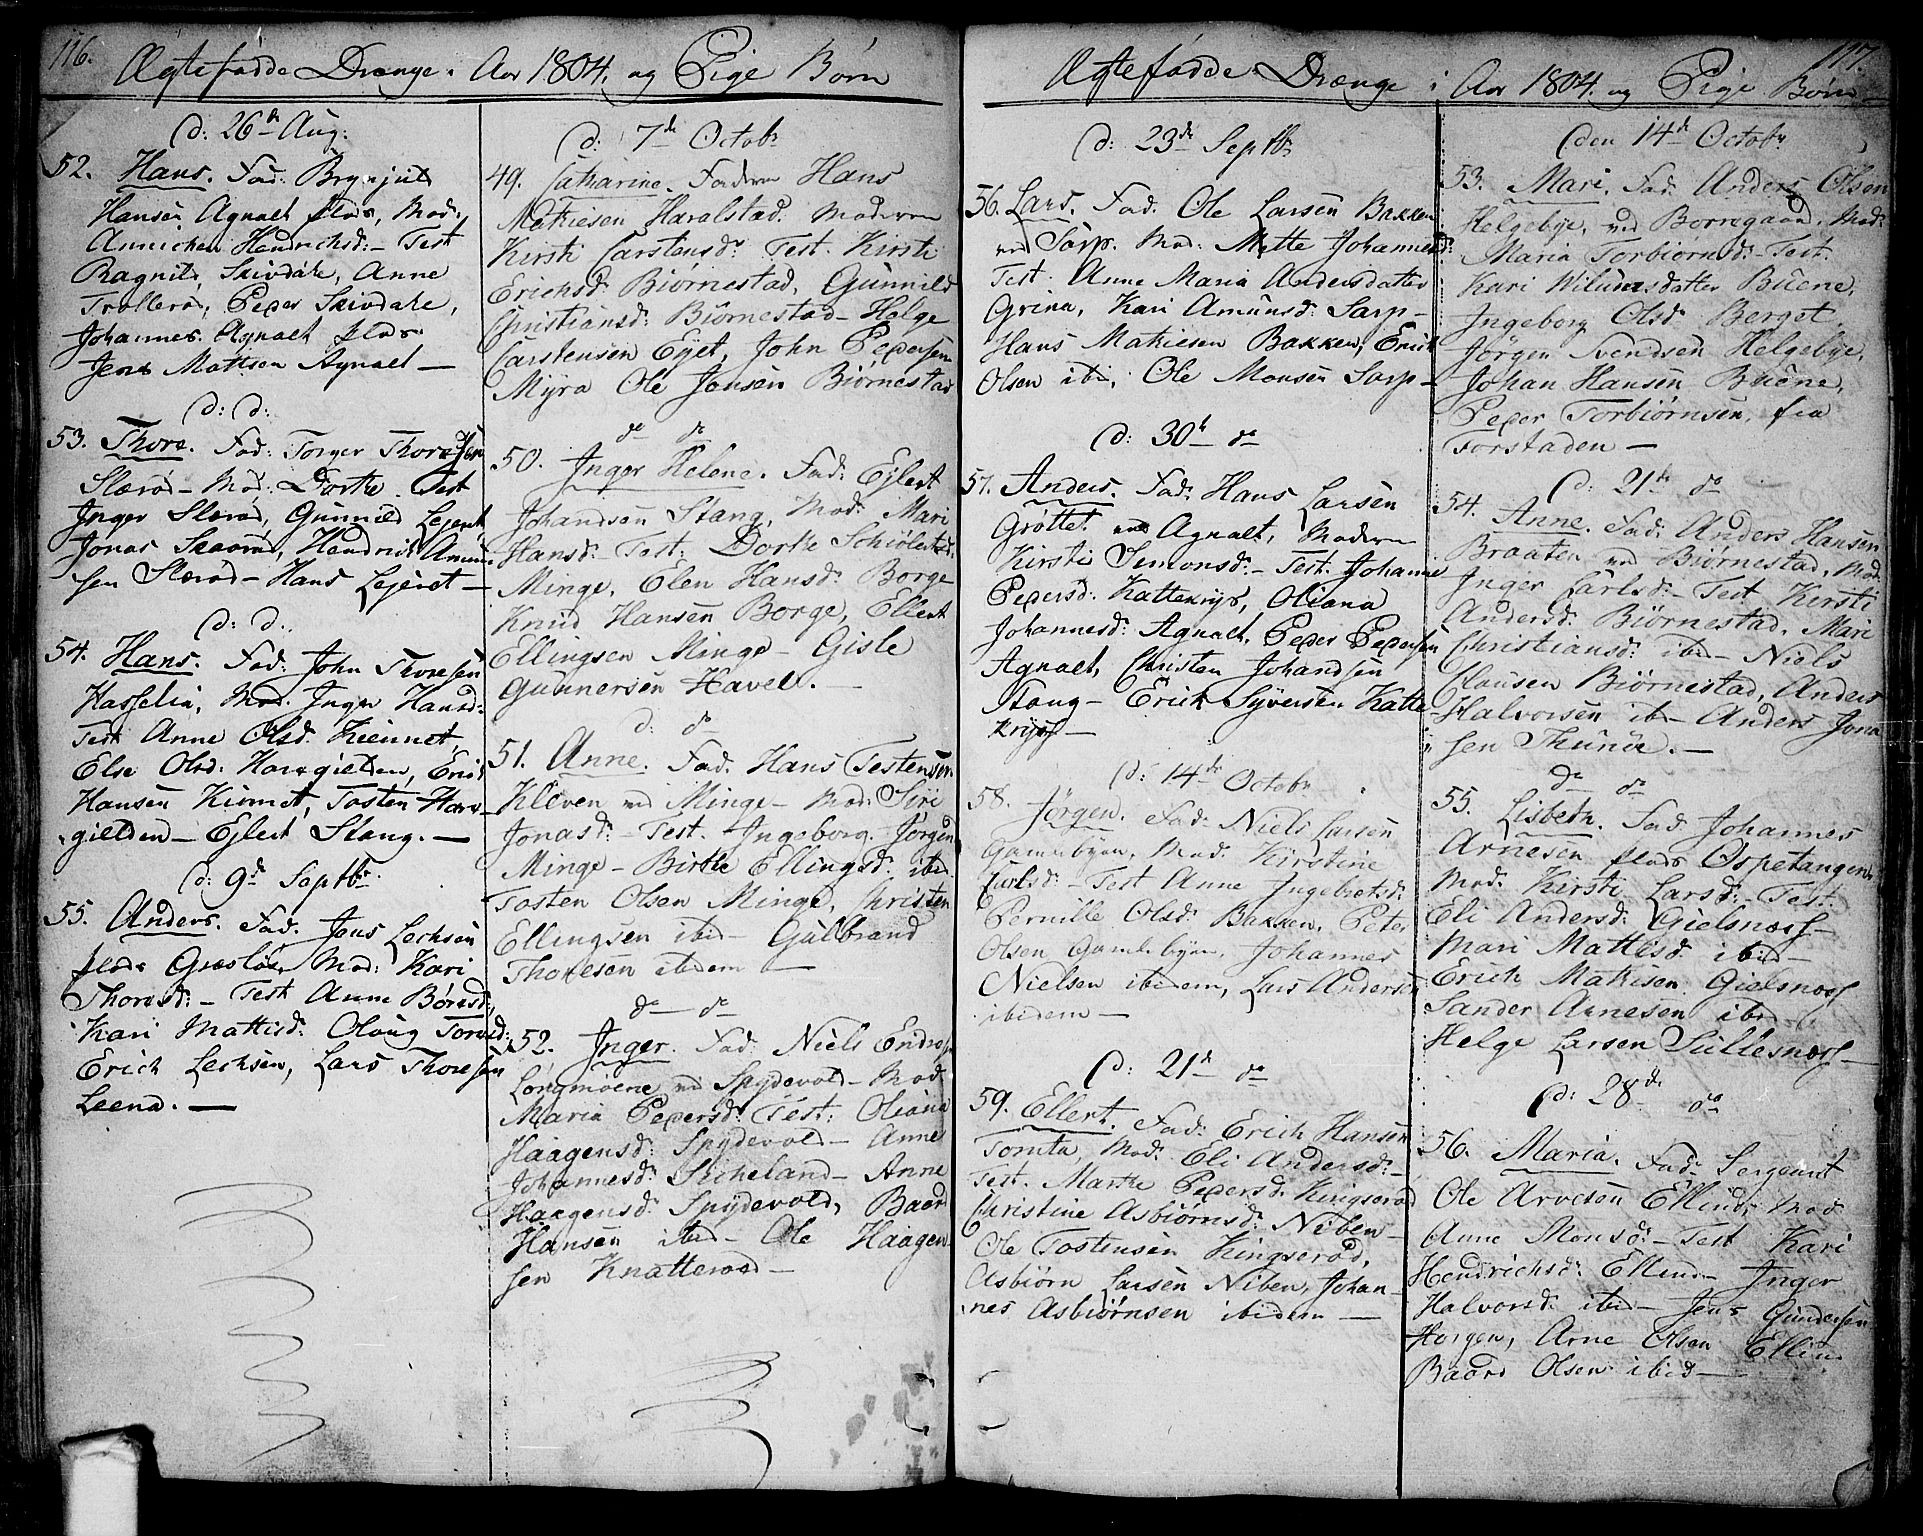 116.
Ægtefødde Drænge i Aar 1804. og Pige Børn
d: 26de Aug:
52. Hans. Fad: Brynjul
Hansen Agnalt plads, Mod:
Annichen Hendrichsd: - Test
Ragnild Skivdahle, Anne
Trollerød, Peder Skivdahle,
Johannes Agnalt plads
Jens Mattsen Agnalt -
d: d:
53. Thore. Fad: Torger Thoresen
Slærød - Mod: Dorthe. Test
Inger Slærød, Gunnild Lejeret
Jonas Skaarød, Hendrich Amun-
sen Slærød - Hans Lejeret -
d: d:
54. Hans. Fad: John Thoresen
Hasselia, Mod. Inger Hansd:
Test Anne Olsd.
Else Olsd: Haregielden, Erich
Hansen Tosten Hare-
gielden - Ejlert Stang. -
d: 9de Septbr
55. Anders. Fad. Jens Lechsen
plads Græslös, Mod: Kari
Thoresd: - Test Anne Böresd:
Kari Mattisd: Olaug Toresd:
Erich Lechsen, Lars Thoresen
Leena. -
d: 7de Octobr
49. Catharine. Faderen Hans
Mathiesen Haralstad. Moderen
Kirsti Carstensdr Test. Kirsti
Erichsd: Biørnestad, Gunnild
Christiansd: Biørnestad - Helge
Carstensen Eyet, John Pedersen
Myra Ole Jonsen Biørnestad
do do
50. Inger Helene. Fad: Ejlert
Johandsen Stang, Mod: Mari
Hansd: Test: Dorthe Schiölestad
Minge, Elen Hansd: Borge
Knud Hansen Borge, Ellert
Ellingsen Minge - Gisle
Gunnersen Havel. -
d: do
51. Anne. Fad. Hans Testensen
Kleven ved Minge - Mod: Siri
Jonasd: - Test. Ingeborg Jørgend
Minge - Birthe Ellingsd: ibid
Tosten Olsen Minge, Christen
Ellingsen ibid - Gulbrand
Thoresen ibidem -
do do
52. Inger. Fad: Niels Endres.
Longmoene ved Spydevold - Mod
Maria Pedersd: Test: Oliana
Haagensd: Spydevold - Anne
Johannesd: Sicheland - Anne
Haagensd: Spydevold, Baar
Hansen ibid - Ole Haagen-
sen Knatterød -
117.
Ægtefødde Drænge i Aar 1804. og Pige Børn
d: 23de Septbr
56. Lars. Fad. Ole Larsen Bakken
ved Sarp. Mod: Mette Johannesd:
Test: Anne Maria Andersdatter
Grina, Kari Amundsd: Sarp -
Hans Mathiesen Bakken, Erich
Olsen ibid, Ole Monsen Sarp -
d: 30te do
57. Anders. Fad: Hans Larsen
Grøttet ved Agnalt, Moderen
Kirsti Simonsd: - Test. Johanne
Pedersd: Katterijs, Oliana
Johannesd: Agnalt, Peder Pedersen
Agnalt, Christen Johandsen
Stang - Erich Syversen Katte-
rijs -
d: 14de Octobr
58. Jørgen. Fad: Niels Larsen
Gamlebyen, Mod. Kirstine
Carlsd: - Test Anne Ingebretsd:
Pernille Olsd: Bakken, Peter
Olsen Gamlebyen, Johannes
Nielsen ibidem, Lars Andersen
ibidem -
d: 21de do
59. Ellert. Fad: Erich Hansen
Tomta, Mod: Eli Andersd: -
Test. Marthe Pedersd: Kingserød
Christine Asbiørnsd: Niben -
Ole Tostensen Kingserød,
Asbiørn Larsen Niben, Johan-
nes Asbiørnsen ibidem -
den 14de Octobr
53. Mari. Fad. Anders Olsen
Helgebye, ved Borregaard. Mod:
Maria Torbiørnsd: - Test:
Kari Willumsdatter Buene,
Ingeborg Olsd: Berget
Jørgen Svendsen Helgebye,
Johan Hansen Buene,
Peder Torbiørnsen, fra
Forstaden -
d: 21de do
54. Anne. Fad: Anders Hansen
Braaten ved Biørnestad, Mod:
Inger Carlsd: - Test Kirsti
Andersd: Biørnestad, Mari
Christiansd: ibid - Niels
Clausen Biørnestad, Anders
Halvorsen ibid - Anders Jona-
sen Thune. -
do do
55. Lisbeth. Fad. Johannes
Arnesen plads Ospetangen
Mod: Kirsti Larsd: Test:
Eli Andersd: Gielsnæs -
Mari Mattisd: ibid -
Erich Mathisen Gielsnæs
Sander Arnesen ibid
Helge Larsen Tullesnæs -
d: 28de do
56. Maria. Fad: Sergeant
Ole Arvesen Ellind, Mod
Anne Monsd: - Test Kari
Hendrichsd: Ellind - Inger
Halvorsd: ibid - Jens Gundersen
Horgen, Arne Olsen Ellin
Baard Olsen ibid -